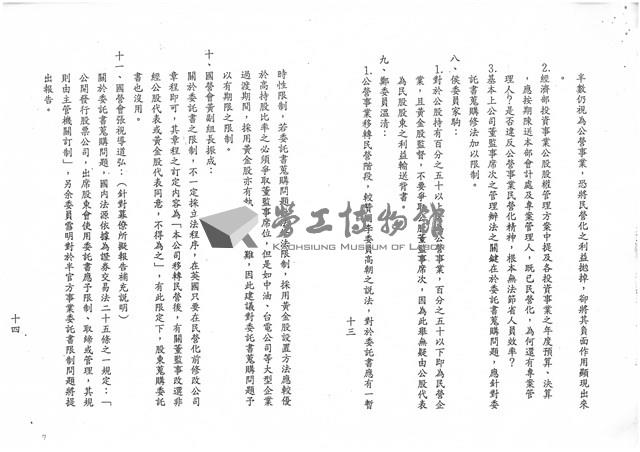 半數仍視為公營事業，恐將民營化之利益拋掉，卻將其負面作用顯現出來
。
2.經濟部投資事業公股股權管理方案中提及各投資事業之年度預算、決算
，應按期陳送本部會計處及專業管理人，既已民營化，為何還有專業管
理人？是否違反公營事業民營化精神，根本無法節省人員效率？
3.基本上公司董監事席次之管理辦法之關鍵在於委託書蒐購問題，應針對委
託書蒐購修法加以限制。
八、侯委員家駒：
1.對於公股持有百分之五十以上公營事業，百分之五十以下即為民營企
業，且黃金股監督，不要爭取公股董監事席次，因為此舉無疑由公股代表
為民股股東之利益輸送背書。
九、鄭委員溫清：
1.公營事業移轉民營階段，較贊同李委員高朝之說法，對於委託書應有一暫
十三
時性限制，若委託書蒐購問題 法限制，採用黃金股設置方法應較優
於高持股比率之必須爭取董監事席位，但是如中油、台電公司等大型企業
過渡期間，採用黃金股亦有執 難，因此建議對委託書蒐購問題予
以有期限之限制。
十、國營會黃副組長振成：
關於委託書之限制，不一定採立法程序，在英國只要在民營化前修改公司
章程即可，其章程之訂定內容為「本公司移轉民營後，有關董監事改選非
經公股代表或黃金股代表同意，不得為之」，有此限定下，股東蒐購委託
書也沒用。
十一、國營會張視導道弘：（針對幕僚所擬報告補充說明）
關於委託書蒐購問題，國內法源依據為證券交易法二十五條之一規定：「
公開發行股票公司，出席股東會使用委託書應予限制、取締或管理，其規
則由主管機關訂制」，另余委員雪明對於半官方事業委託書限制問題將提
出報告。
十四
7
勞工博物館
KAOHSIUNG MUSEUM OF LABOR